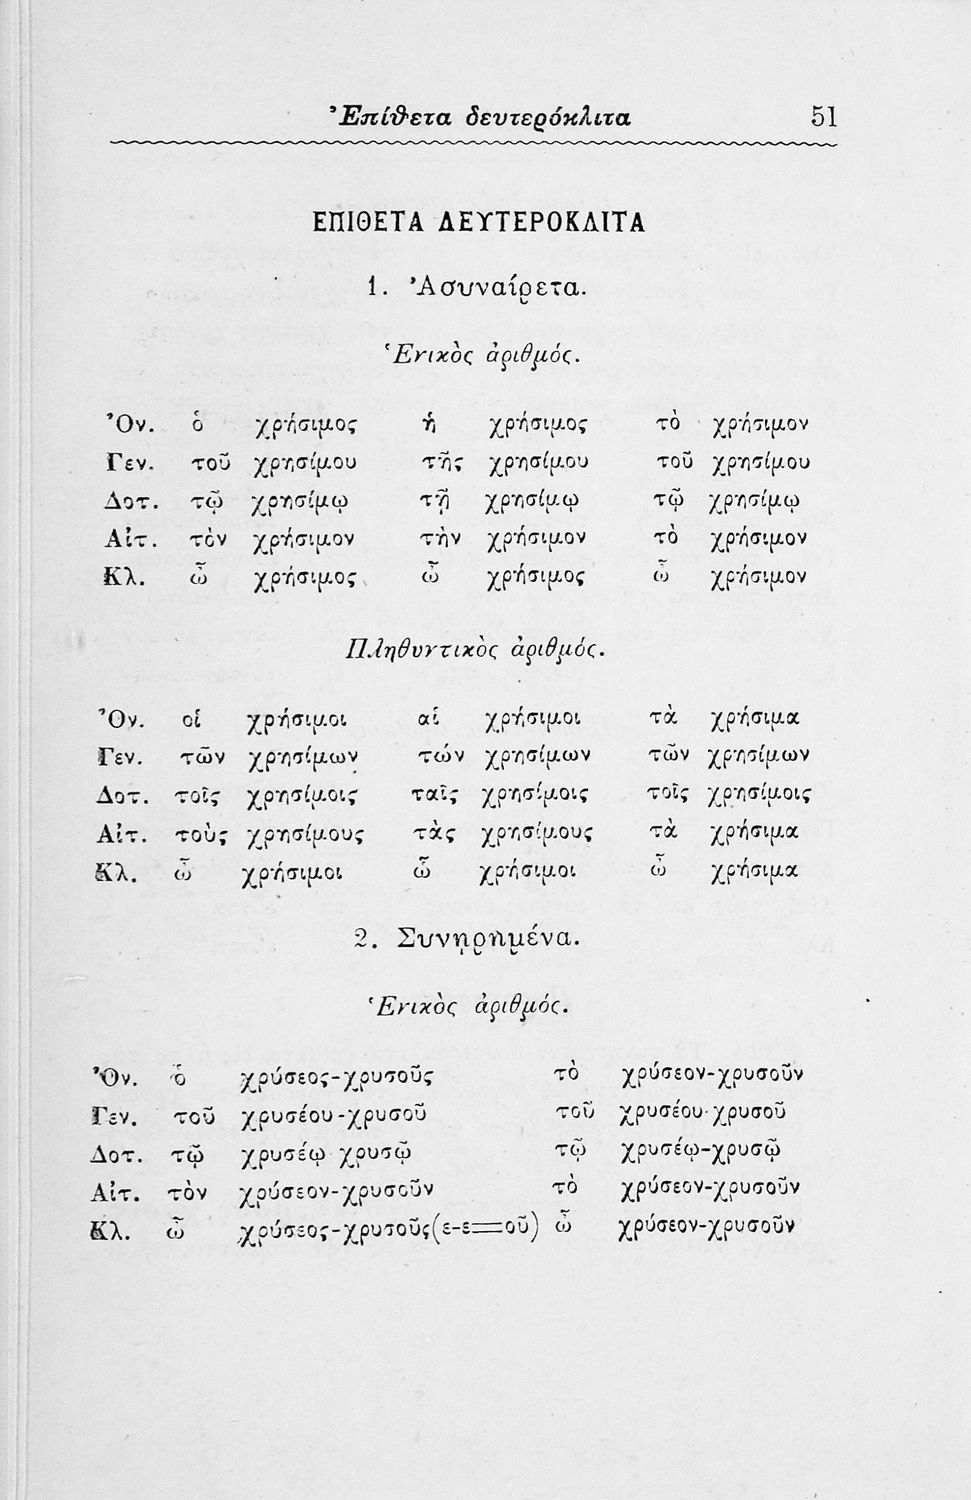 Ἐπίθετα δευτερόκλιτα 51
ΕΠΙΘΕΤΑ ΔΕΥΤΕΡΟΚΛΙΤΑ
1. Ἀσυναίρετα.
Ἑνικὸς ἀριθμός.
Ὀν. ὁ χρήσιμος ἡ χρήσιμος τὸ χρήσιμον
Γεν. τοῦ χρησίμου τῆς χρησίμου τοῦ χρησίμου
Δοτ. τῷ χρησίμῳ τῇ χρησίμῳ τῷ χρησίμῳ
Αἰτ. τὸν χρήσιμον τὴν χρήσιμον τὸ χρήσιμον
Κλ. ὦ χρήσιμος ὦ χρήσιμος ὦ χρήσιμον
Πληθυντικὸς ἀριθμός.
Ὀν. οἱ χρήσιμοι αἱ χρήσιμοι τὰ χρήσιμα
Γεν. τῶν χρησίμων τῶν χρησίμων τῶν χρησίμων
Δοτ. τοῖς χρησίμοις ταῖς χρησίμοις τοῖς χρησίμοις
Αἰτ. τοὺς χρησίμους τὰς χρησίμους τὰ χρήσιμα
Κλ. ὦ χρήσιμοι ὦ χρήσιμοι ὦ χρήσιμα
2. Συνῃρημένα.
Ἑνικὸς ἀριθμός.
Ὀν. ὁ χρύσεος-χρυσοῦς τὸ χρύσεον-χρυσοῦν
Γεν. τοῦ χρυσέου-χρυσοῦ τοῦ χρυσέου-χρυσοῦ
Δοτ. τῷ χρυσέῳ χρυσῷ τῷ χρυσέῳ-χρυσῷ
Αἰτ. τὸν χρύσεον-χρυσοῦν τὸ χρύσεον-χρυσοῦν
Κλ. ὦ χρύσεος-χρυσοῦς(ε-ε=οῦ) ὦ χρύσεον-χρυσοῦν